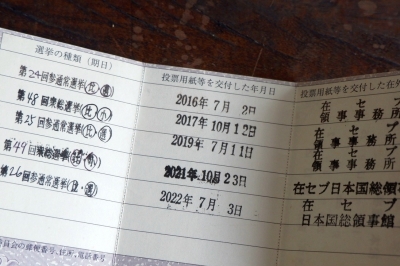 選挙の種類（期日）
投票用紙等を交付した年月日
投票用紙等を交付した在外
第24回参通常選挙(比)(選)
2016年 7月 2日
在セブ
領事事務所
第48回衆総選挙(比)(小)
2017年10月12日
在セブ
領事事務所
第25回参通常選挙(比)(選)
2019年 7月11日
在セブ
領事事務所
第49回
2021年10月23日
在セブ日本国総領事
第26回参通常選挙(比)(選)
2022年 7月 3日
在セブ
日本国総領事館
員会の郵便番号、住所、電話番号